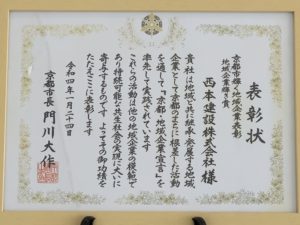 表彰状
京都市輝く地域企業表彰
地域企業輝き賞
西本建設株式会社 様
貴社は地域と共に継承発展する地域
企業として京都のまちに根差した活動
を通して、「京都・地域企業宣言」を
率先して実践されています
これらの活動は他の地域企業の模範で
あり持続可能な共生社会の実現に大いに
寄与するものです よってその御功績を
たたえここに表彰します
令和四年一月二十四日
京都市長 門川大作